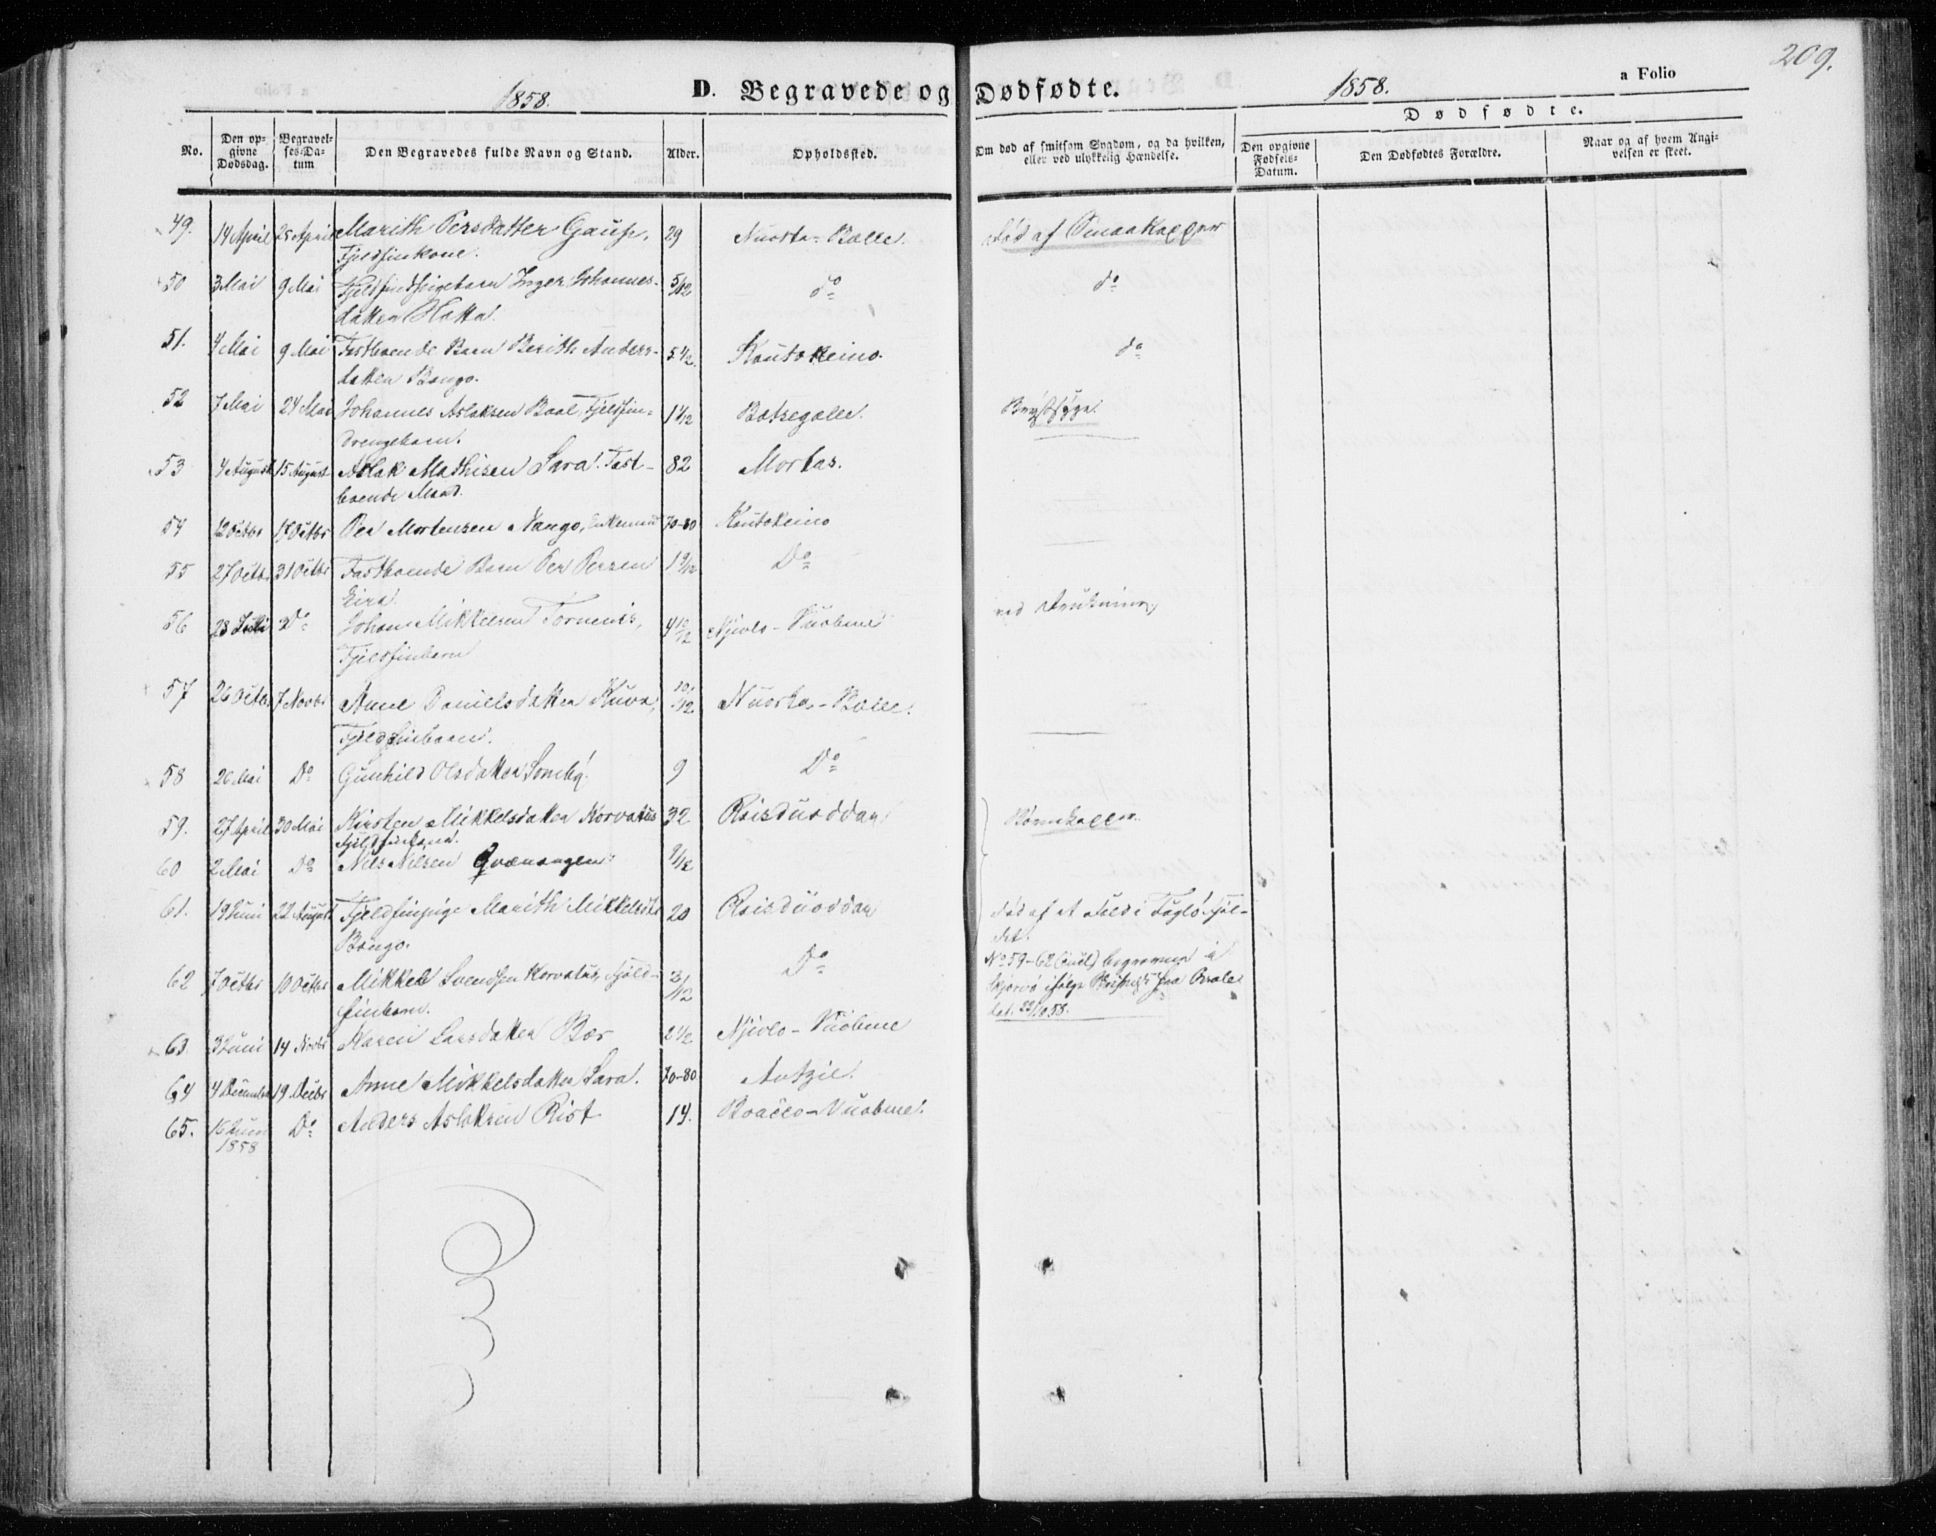 209.
1858. D. Begravede og Dødfødte. 1858. a Folio
Dødfødte.
No. Den opgivne Dødsdag. Begravelses-Datum Den Begravedes fulde Navn og Stand. Alder. Opholdssted. Om død af smitsom Sygdom, og da hvilken, eller ved ulykkelig Hændelse. Den opgivne Fødsels-Datum. Den Dødfødtes Forældre. Naar og af hvem Angivelsen er skeet.
49. 14 April 25 April Marith Persdatter Gaup, 29 Nuorta-Bælle. død af Smaakopper
Fjeldfinkone.
50 3 Mai 9 Mai Fjeldfindpigebarn Inger Johannes- 5/12 do do
datter Hætta.
51. 4 Mai 9 Mai Fastboende Barn Berith Anders- 5 1/2 Koutokeino. do
datter Bongo.
52 7 Mai 24 Mai Johannes Aslaksen Baal, Fjeldfin- Brystsyge.
drengebarn.
53 4 August 15 August Aslak Mathisen Sara. Fast- 82 Mortas.
boende Mand.
54 12 Octbr 17 Octbr Per Mortensen Nango, 70-80 Koutokeino
55 27 Octbr 31 Octbr Fastboende Barn Per Persen 1 9/12 Do
Eira
56 28 Juli Do Johan Mikkelsen Tornenis, 4 10/12 Njivlo-Vuobme ved Drukning
Fjeldfinbarn
57 26 Octbr 7 Novbr Anne Danielsdatter Kuva, 10/12 Nuorta-Bælle.
Fjeldfinbarn.
58 26 Mai Do Gunhild Olsdatter Somby. 9 Do
59. 27 April 30 Mai Kirsten Mikkelsdatter Korvatus 32 Roisduoddar Børnekopper.
Fjeldfinkone.
60 2 Mai Do Nils Nilsen Qvænangen
61. 19 Juni 22 August Fjeldfinpige Marith Mikkelsdtr 20 Roisduoddar død af et Fald i Fuglöfjäl-
Bongo. det.
62 7 Octbr 10 Octbr Mikkel Svendsen Korvatus, Fjeld- 3/12 Do No 59-62 (incl) begraven i
finbarn. Skjervø ifølge
dat. 22/10 58.
63. 3 Juni 14 Novbr Karen Larsdatter Bær 2 1/2 Njivlo-Vuobme
64 4 December 19 Decbr Anne Mikkelsdatter Sara. 70-80 Autzie.
65. 15 Juni Do Anders Aslaksen Rist 14. Boacco-Vuobme.
1858